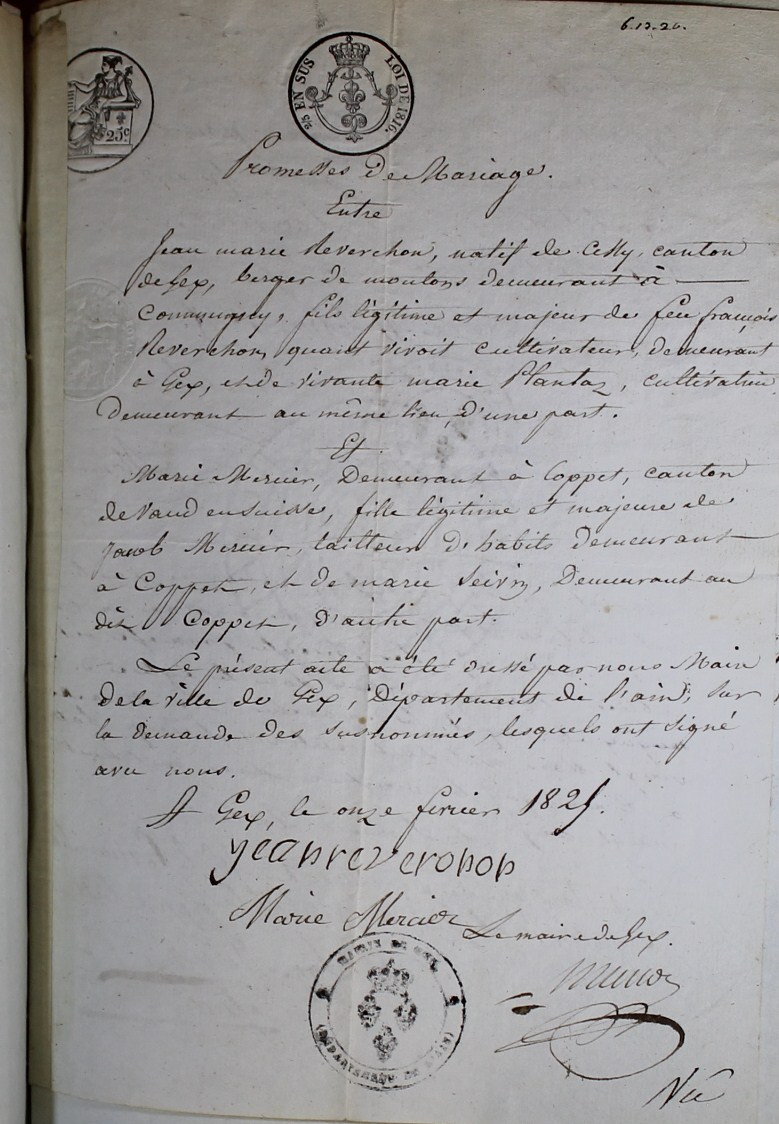 6.13.26.
25c
2/5 EN SUS LOI DE 1816.
Promesses de Mariage.
Entre
Jean marie Reverchon, natif de Cessy, canton
de Gex, berger de moutons demeurant à
Commugny, fils légitime et majeur de feu françois
Reverchon, quant vivoit cultivateur, demeurant
à Gex, et de vivante marie Plantaz, cultivatrice
Demeurant au même lieu, d'une part.
Et
Marie Mercier, Demeurant à Coppet, canton
de Vaud en Suisse, fille légitime et majeure de
Jacob Mercier, tailleur d'habits demeurant
à Coppet, et de marie, Demeurant au
dit Coppet, d'autre part.
Le présent acte a été dressé par nous Maire
de la ville de Gex, Département de l'ain, sur
la demande des susnommés, lesquels ont signé
avec nous.
A Gex, le onze fevrier 1825.
jean reverchon
Marie Mercier
Le maire de Gex.
MAIRIE DE GEX
(DÉPARTEMENT DE L'AIN)
Vu